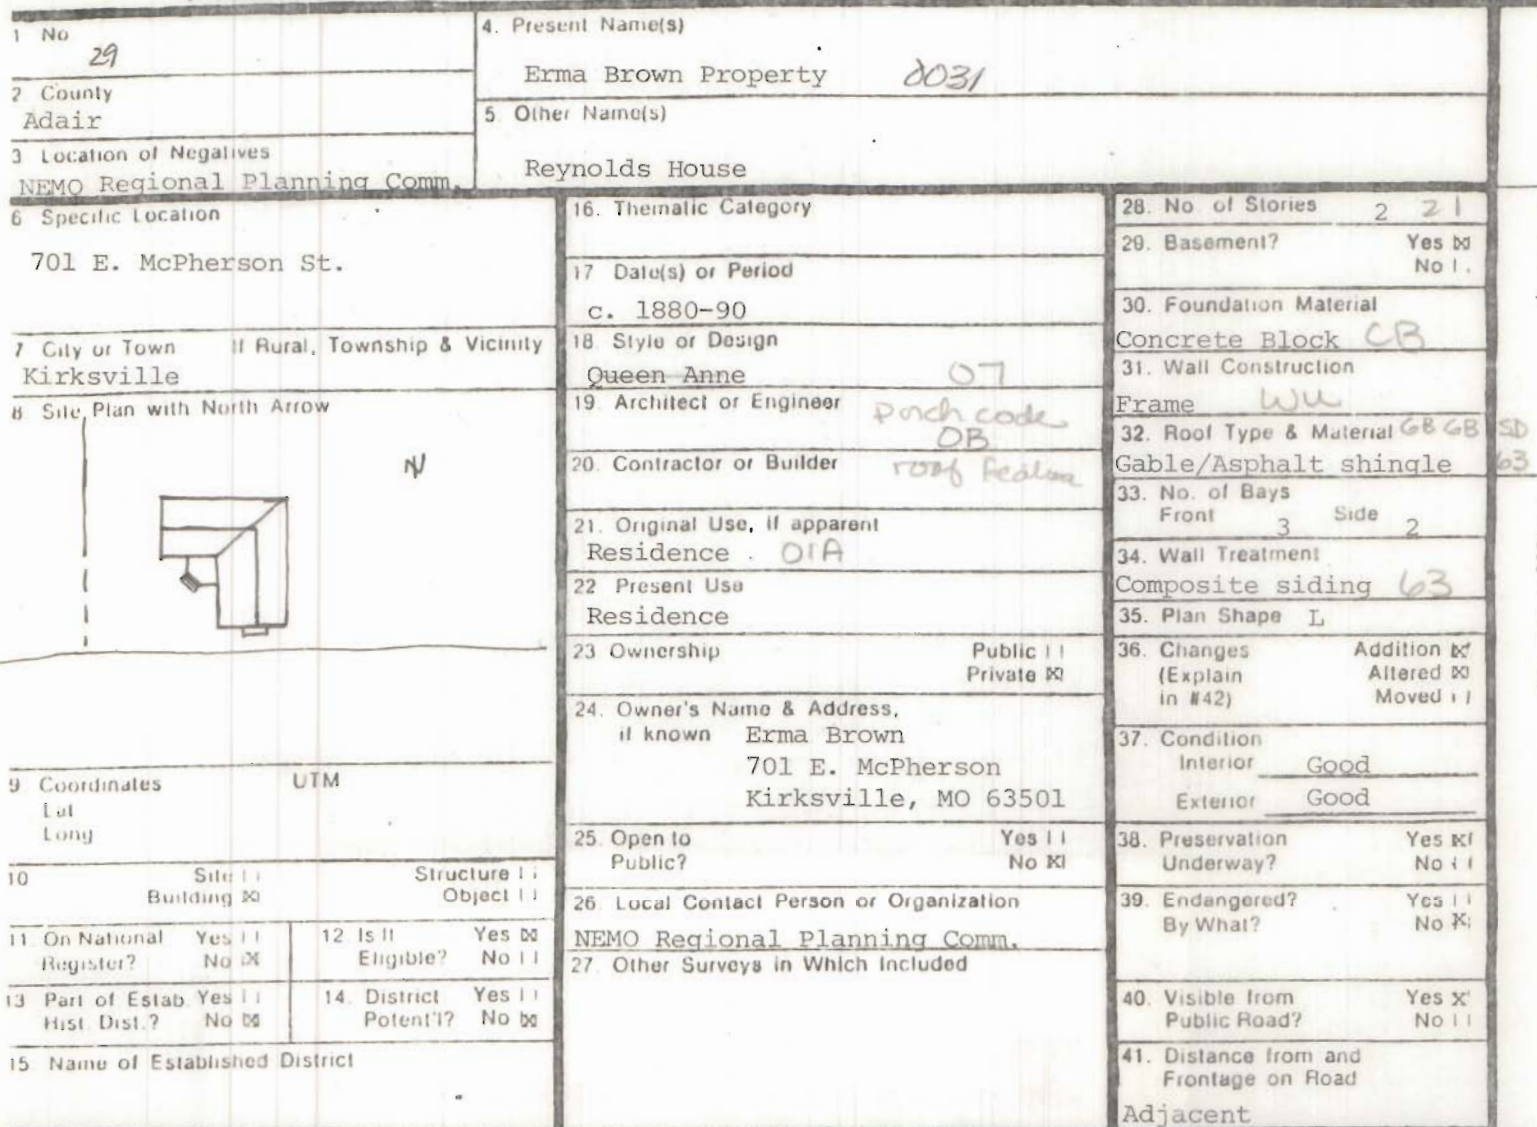 1 No
29
2 County
Adair
3 Location of Negatives
NEMO Regional Planning Comm.
4. Present Name(s)
Erma Brown Property 0031
5 Other Name(s)
Reynolds House
6 Specific Location
701 E. McPherson St.
7 City or Town If Rural, Township & Vicinity
Kirksville
8 Site Plan with North Arrow
N
9 Coordinates UTM
Lat
Long
10 Site Structure
Building ☒ Object
11. On National Register? Yes No ☒
12 Is It Eligible? Yes ☒ No
13 Part of Estab. Hist. Dist.? Yes No ☒
14. District Potent'l? Yes No ☒
15 Name of Established District
16. Thematic Category
17 Date(s) or Period
c. 1880-90
18 Style or Design
Queen Anne 07
19. Architect or Engineer porch code
OB
20. Contractor or Builder roof
21. Original Use, if apparent
Residence 01A
22 Present Use
Residence
23 Ownership Public
Private ☒
24. Owner's Name & Address,
if known Erma Brown
701 E. McPherson
Kirksville, MO 63501
25. Open to Yes
Public? No ☒
26. Local Contact Person or Organization
NEMO Regional Planning Comm.
27. Other Surveys in Which Included
28. No. of Stories 2 21
29. Basement? Yes ☒
No
30. Foundation Material
Concrete Block CB
31. Wall Construction
Frame WU
32. Roof Type & Material GB GB SD
Gable/Asphalt shingle 63
33. No. of Bays
Front 3 Side 2
34. Wall Treatment
Composite siding 63
35. Plan Shape L
36. Changes Addition ☒
(Explain Altered ☒
in #42) Moved
37. Condition
Interior Good
Exterior Good
38. Preservation Yes ☒
Underway? No
39. Endangered? Yes
By What? No ☒
40. Visible from Yes ☒
Public Road? No
41. Distance from and
Frontage on Road
Adjacent